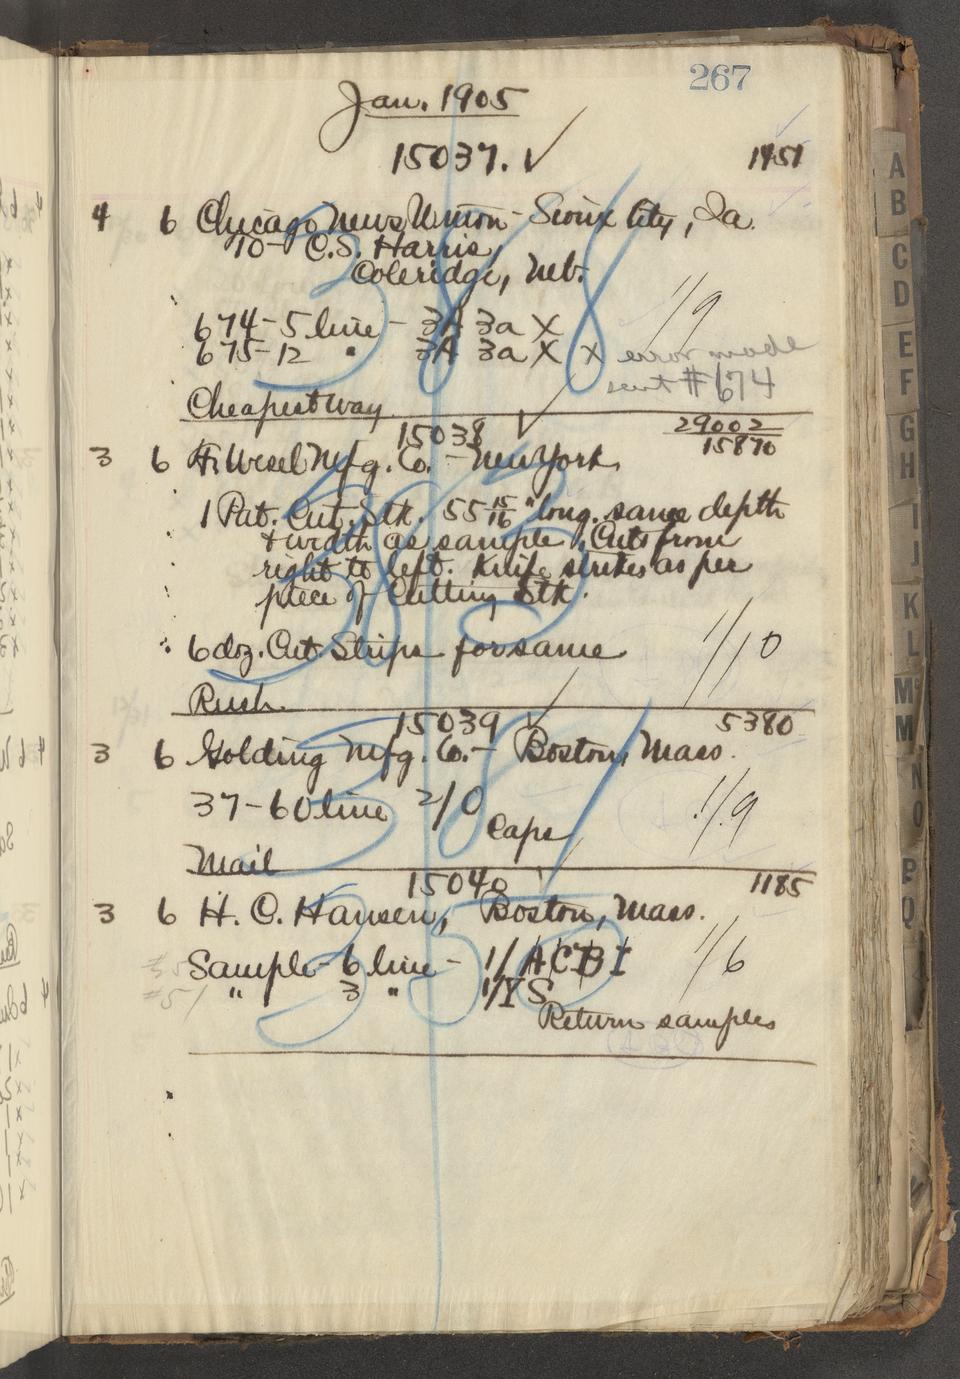 267
Jan. 1905
15037. ✓ 1451
4 6 Chicago News Union - Sioux City, Ia.
To - C.S. Harris,
Coleridge, Neb.
674-5 line - 3A 3a X 1/9
675-12 " 3A 3a X X error made
sent #674
Cheapest way
29002
15038 ✓ 15870
3 6 F. Wesel Mfg. Co. - New York
1 Pat. Cut. Stk. 55 15/16" long. same depth
& width as sample. Cuts from
right to left. Knife strikes as per
piece of Cutting Stk.
6 doz. Cut Strips for same 1/10
Rush.
15039 ✓ 5380
3 6 Golding Mfg. Co. - Boston, Mass.
37-60 line 2/0 1/9
Caps
Mail
15040 1185
3 6 H. C. Hansen, Boston, Mass.
Sample - 6 line - 1/ACBI 1/6
" 3 " 1/IS
Return samples
388
387
A
B
C
D
E
F
G
H
I
J
K
L
M
M
N
O
P
Q